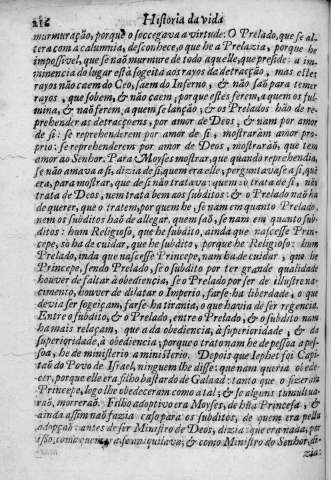 212 Historia da vida
murmuração, porque o soccegava a virtude: O Prelado, que se al-
tera com a calumnia, desconhece, o que he a Prelazia, porque he
impossivel, que se naõ murmure de todo aquelle, que preside: a im-
minencia do lugar està sogeita aos rayos da detracção, mas estes
rayos não caem do Ceo, saem do Inferno, & naõ saõ para temer
rayos, que sobem, & naõ caem; porque estes ferem, a quem os ful-
mina, & naõ ferem, a quem se lançaõ; & os Prelados haõ de re-
prehender as detracçoens, por amor de Deos, & naõ por amor
de si: se reprehenderem por amor de si, mostraràm amor pro-
prio: se reprehenderem por amor de Deos, mostraràõ, que tem
amor ao Senhor. Para Moyses mostrar, que quando reprehendia,
se não amava a si, dizia de si, quem era elle, perguntavase a si, què
era, para mostrar, que de si não tratava: quem só trata de si, não
trata de Deos, nem trata bem aos subditos: & o Prelado naõ ha
de querer, que o tratem, por quem he, se naõ em quanto Prelado,
nem os subditos haõ de allegar, quem saõ, se nam em quanto sub-
ditos: hum Religioso, que he subdito, ainda que nascesse Prin-
cepe, sò ha de cuidar, que he subdito, porque he Religioso: hum
Prelado, inda que nascesse Princepe, nam ha de cuidar, que he
Princepe, sendo Prelado, se o subdito por ter grande qualidade
houver de faltar à obediencia, se o Prelado por ser de illustre na-
cimento, houver de dilatar o Imperio, farse-ha liberdade, o que
devia ser sogeiçam, farse-ha tirania, o que havia de ser regencia.
Entre o subdito, & o Prelado, entre o Prelado, & o subdito nam
ha mais relaçam, que a da obediencia, à superioridade, & da
superioridade, à obediencia; porque o trato nam he de pessoa a pes-
soa, he de ministerio a ministerio. Depois que Iephet foi Capi-
taõ do Povo de Israel, ninguem lhe disse: que nam queria obede-
cer, porque elle era filho bastardo de Galaad: tanto que o fizeram
Princepe, logo lhe obedeceram como a tal; & se alguns tumultua-
raõ, morreraõ. Filho adoptivo era Moyses, de hũa Princesa, &
ainda assim naõ fazia caso para os subditos, de quem era pella
adopçaõ: antes de ser Ministro de Deos, dizia que era nada, por
isso, como quem era, se aniquilava; & como Ministro do Senhor, di-
zia: